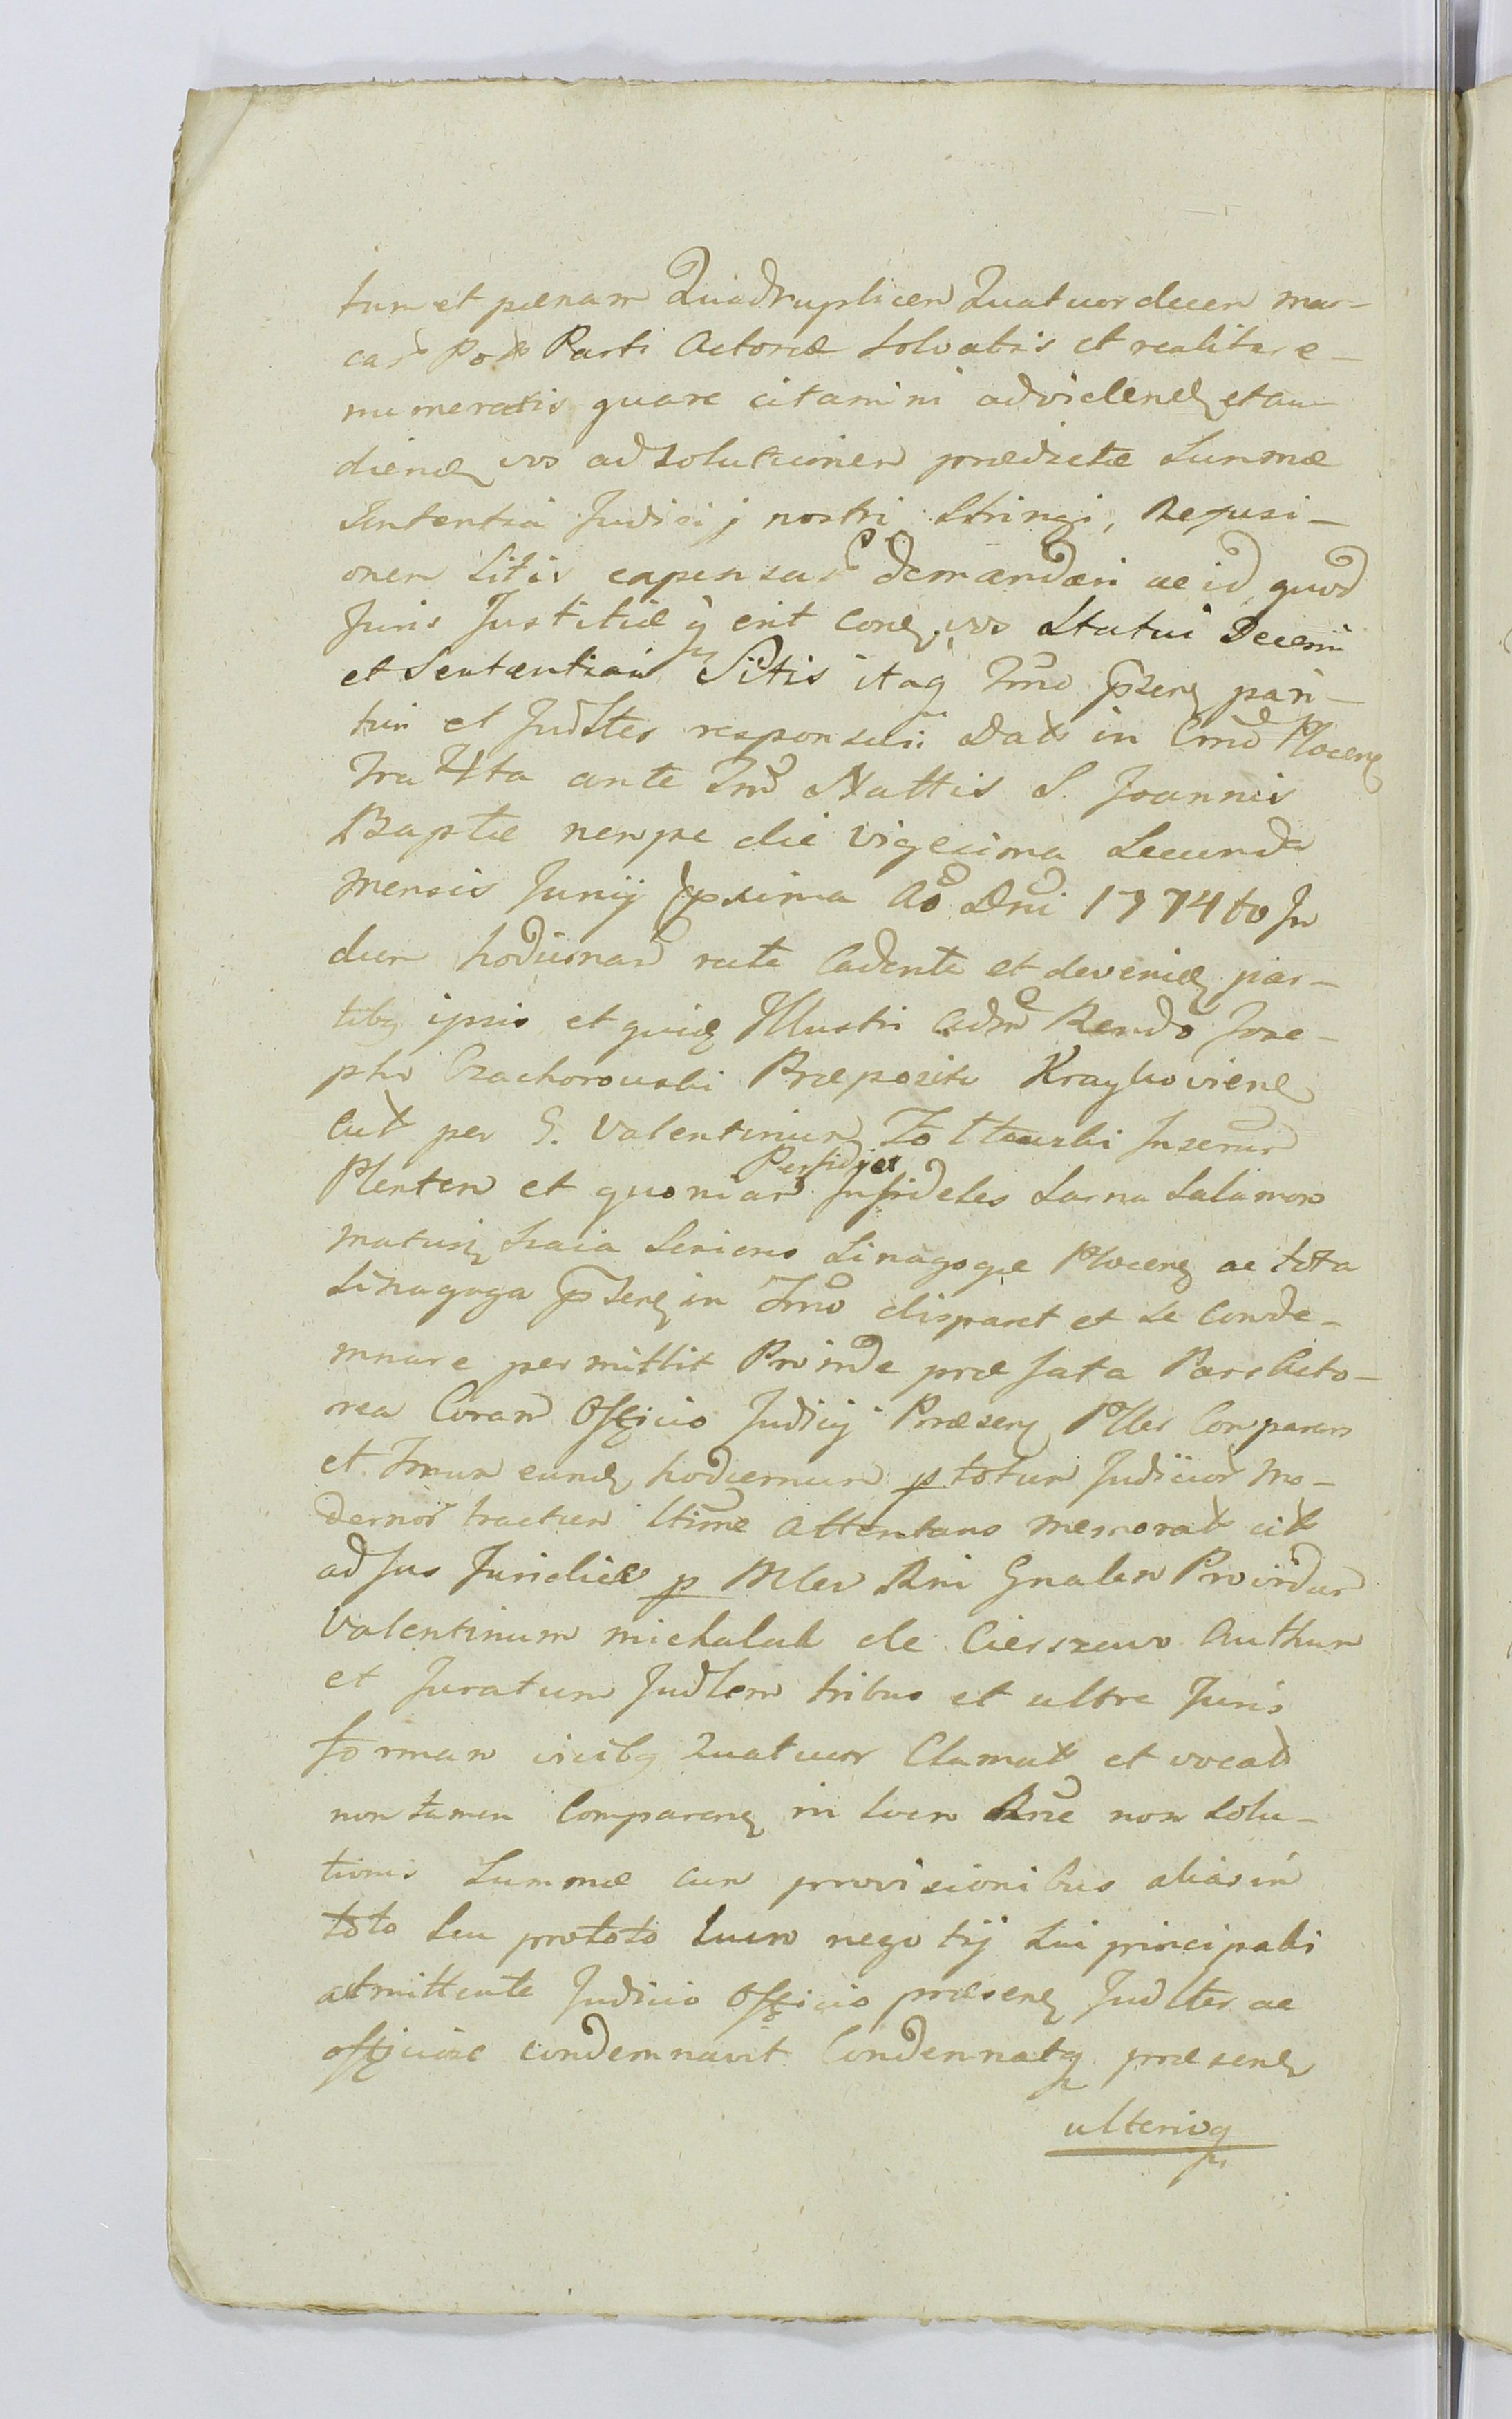 tum et pænam Quadruplicem Quatuordecem mar-
car Pol Parti Actoreæ solvatis et realiter e-
numeratis quare citamini ad videnđ et au-
dienđ vos ad solutionem prædictæ Summæ
Sententia Judicij nostri Stringi, Refusi-
onem Litis expensar demandari ac id, quod
Juris Justitiæq erit Conđ vos Statui Decerni
et Sententiari Sitis itaq Tmō pszenđ pari-
turi et Judlter responsuri Dat in Cmō Plocenđ
Fra 4ta ante Fm̄ Nattis S. Joannis
Baptæ nempe die vigesima Secunda
mensis Junij proxima Aō Dni 1774to In
diem hodiernam rite Cadente et devenienđ par-
tibq ipsis et quidđ Illustri Adm Rendo Jose-
pho Czachorowski Præposito Kraykovienđ
Cit per G. Valentinum Inserum
Plenten et quoniam Perfidi et Infideles Sarna Salamon
Matusz Szaia Seniores Sinagogæ Plocenđ ac tota
Sinagoga pszenđ in Tmō disparet et se Conde-
mnare permittit Proinde præfata Pars Acto-
rea Coram Officio Judicij Præsenđ Pller Comparens
et Tmum eunđ hodiernum p totum Judicior mo-
dernor tractum ltime Attentans memorat cit
ad Jus Juridicæ p Mlem Rni Gnalem Providum
Valentinum Michalak de Cierszewo Authum
et Juratum Judlem tribus et ultra Juris
formam vicibq Quatuor Clamat et vocat
non tamen Comparenđ in lucro Rne non Solu-
tionis Summæ cum provisionibus alias in
toto seu pro toto lucro negotij sui principali
admittente Judicio Officio præsenđ Judlter ac
officiose condemnavit Condemnatq præsenđ
ulterioq